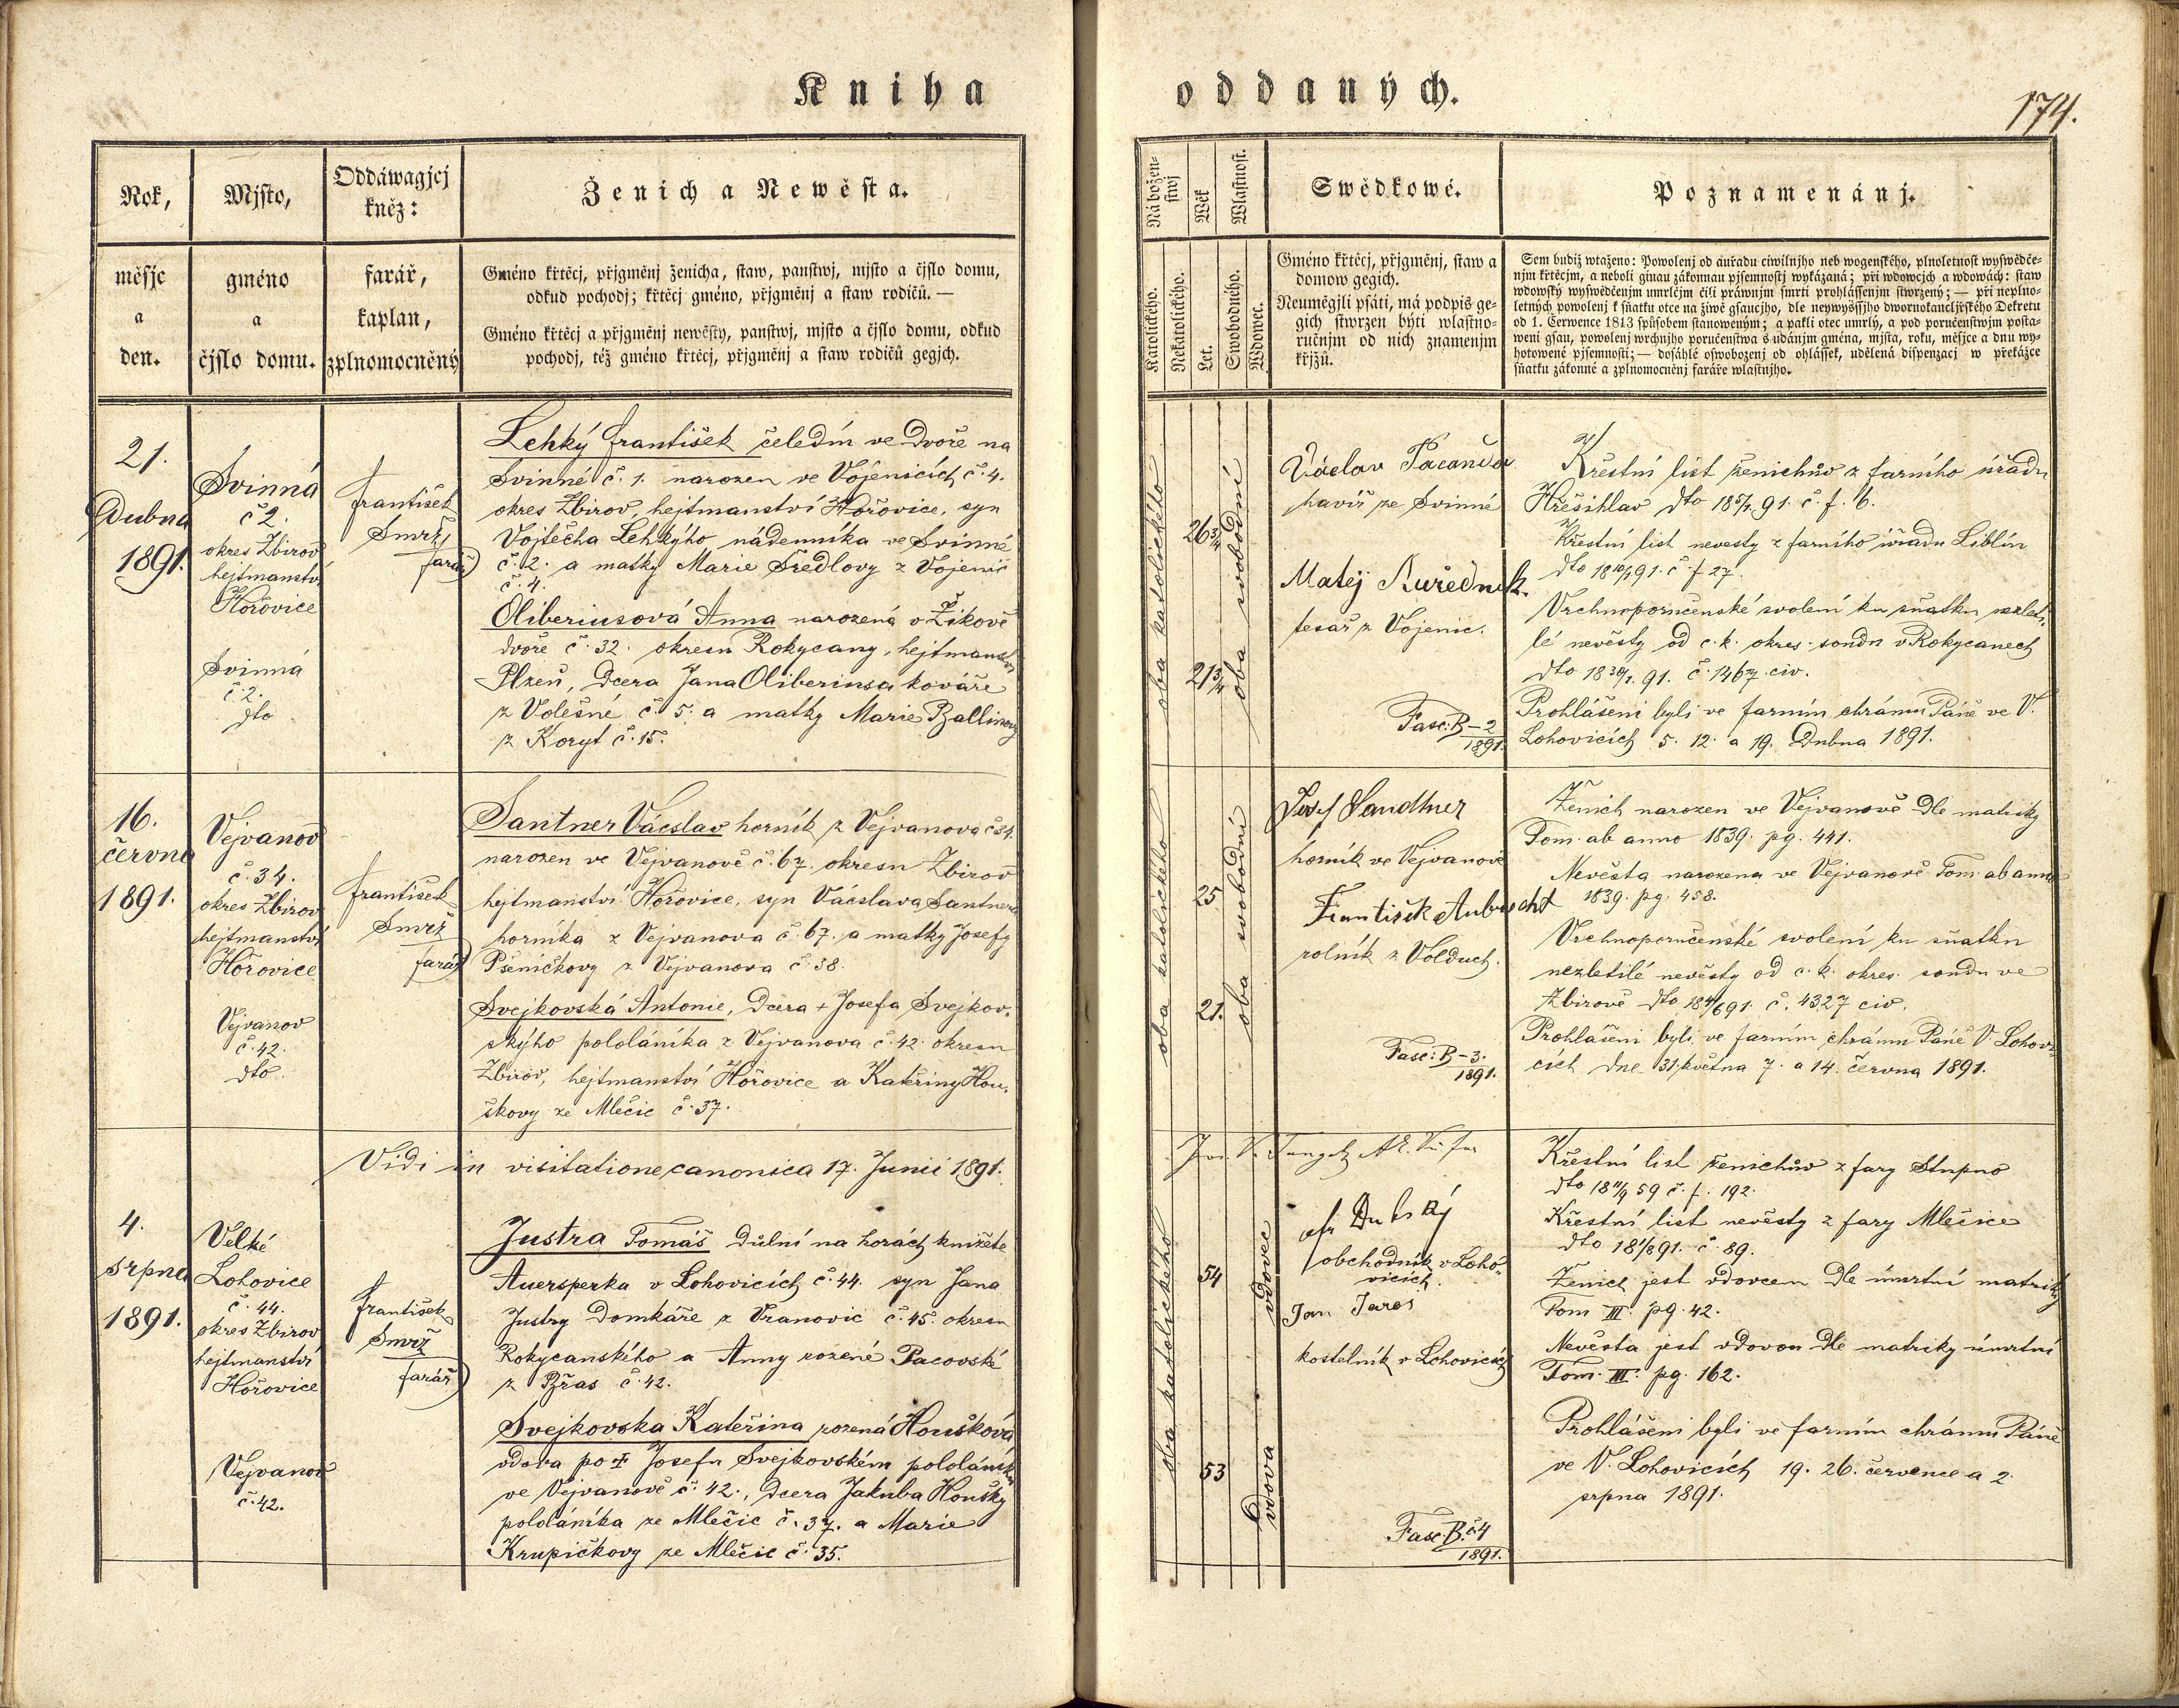 Kniha oddaných.
174.
Rok,
měsjc
a
den.
Mjsto,
gméno
a
čjslo domu.
Oddáwagjcj
kněz:
farář,
kaplan,
zplnomocněný
Ženich a Newěsta.
Gméno křtěcj, přjgměnj ženicha, staw, panstwj, mjsto a čjslo domu,
odkud pochodj; křtěcj gméno, přjgměnj a staw rodičů. —
Gméno křtěcj a přjgměnj newěsty, panstwj, mjsto a čjslo domu, odkud
pochodj, též gméno křtěcj, přjgměnj a staw rodičů gegjch.
Nábožen-
stwj
Wěk
Wlastnost.
Katolického.
Nekatolického.
Let.
Swobodného.
Wdowec.
Swědkowé.
Gméno křtěcj, přjgměnj, staw a
domow gegich.
Neuměgjli psáti, má podpis ge-
gich stwrzen býti wlastno-
ručnjm od nich znamenjm
křjžů.
Poznamenánj.
Sem budiž wtaženo: Powolenj od auřadu ciwilnjho neb wogenského, plnoletnost wyswědče-
njm křtěcjm, a neboli ginau zákonnau pjsemnostj wykázaná; při wdowcjch a wdowách: staw
wdowský wyswědčenjm umrlčjm čili práwnjm smrti prohlássenjm stwrzený; — při neplno-
letných powolenj k sňatku otce na žiwě gsaucjho, dle neywyšsjho dwornokancljřského Dekretu
od 1. Čerwence 1813 spůsobem stanoweným; a pakli otec umrlý, a pod poručenstwjm posta-
weni gsau, powolenj wrchnjho poručenstwa s udánjm gména, mjsta, roku, měsjce a dnu wy-
hotowené pjsemnosti; — dosáhlé oswobozenj od ohlášsek, udělená dispensacj w překážce
sňatku zákonné a zplnomocněnj faráře wlastnjho.
21.
Dubna
1891.
Svinná
č 2.
okres Zbirov
hejtmanství
Hořovice
Svinná
č. 2.
dto
František
Smrž
farář
Lehký František čeledín ve dvoře na
Svinné č. 1. narozen ve Vojenicích č. 4.
okres Zbirov, hejtmanství Hořovice, syn
Vojtěcha Lehkýho nádenníka ve Svinné
č. 2. a matky Marie Šredlovy z Vojenic
č. 4.
Oliberiusová Anna narozená v Žikově
dvoře č. 32. okresu Rokycany, hejtmanství
Plzeň, dcera Jana Oliberiusa kováře
z Volešné č. 5. a matky Marie Ballinovy
z Koryt č. 15.
oba katolického
26 3/4
21 3/4
oba svobodní
Václav Pacanda
havíř ze Svinné
Matěj Kuředník.
tesař z Vojenic.
Fasc: B-2
1891.
Křestní list ženichův z farního úřadu
Hřešihlav dto 18 5/4 91. č. f. 6.
Křestní list nevesty z farního úřadu Liblín
č f 27.
Vrchnoporučenské svolení ku sňatku nezlet-
lé nevěsty od c. k. okres. soudu v Rokycanech
č. 1467 civ.
Prohlášeni byli ve farním chrámu Páně ve V.
Lohovicích 5. 12. a 19. Dubna 1891.
16.
června
1891.
Vejvanov
č. 34.
okres Zbirov
hejtmanství
Hořovice
Vejvanov
č. 42.
dto.
František
Smrž
farář
Santner Václav horník z Vejvanova č 34.
narozen ve Vejvanově č. 67. okresu Zbirov
hejtmanství Hořovice, syn Václava Santnera
horníka z Vejvanova č. 67. a matky Josefy
Pšeničkovy z Vejvanova č. 38.
Svejkovská Antonie, dcera + Josefa Svejkov-
skýho pololáníka z Vejvanova č. 42. okresu
Zbirov, hejtmanství Hořovice a Kateřiny Hou-
škovy ze Mlečic č. 37.
oba katolického
25
21.
oba svobodní
Josef Sandtner
horník ve Vejvanově
František Aubrecht
rolník z Volduch.
Fasc: B-3.
1891.
Ženich narozen ve Vejvanově dle matriky
Tom. ab anno 1839. pg. 441.
Nevěsta narozena ve Vejvanově Tom. ab anno
1839. pg. 458.
Vrchnoporučenské svolení ku sňatku
nezletilé nevěsty od c. k. okres. soudu ve
Zbirově č. 4327 civ.
Prohlášeni byli ve farním chrámu Páně V. Lohovi-
cích dne 31. května 7. a 14. června 1891.
Vidi in visitatione canonica 17. Junii 1891.
4.
srpna
1891.
Velké
Lohovice
č. 44.
okres Zbirov
hejtmanství
Hořovice
Vejvanov
č. 42.
František
Smrž
farář
Justra Tomáš důlní na horách knížete
Auersperka v Lohovicích č. 44. syn Jana
Justry Domkáře z Vranovic č. 45. okresu
Rokycanského a Anny rozené Pacovské
z Břas č. 42.
Svejkovska Kateřina rozená Houšková
vdova po + Josefu Svejkovském pololáníku
ve Vejvanově č. 42., dcera Jakuba Houšky
pololáníka ze Mlečic č. 37. a Marie
Krupičkovy ze Mlečic č. 35.
oba katolického
54
53
vdovec
vdova
Dubský
obchodník v Loho-
vicích.
Jan Jareš
kostelník v Lohovicích
Fasc. B. č. 4
1891.
Křestní list ženichův z fary Stupno
dto 18 11/9 59 č. f. 192.
Křestní list nevěsty z fary Mlečice
dto 18 1/8 91. č. 89.
Ženich jest vdovcem dle úmrtní matriky
Tom III. pg. 42.
Nevěsta jest vdovou dle matriky úmrtní
Tom. III. pg. 162.
Prohlášeni byli ve farním chrámu Páně
ve V. Lohovicích 19. 26. července a 2.
srpna 1891.